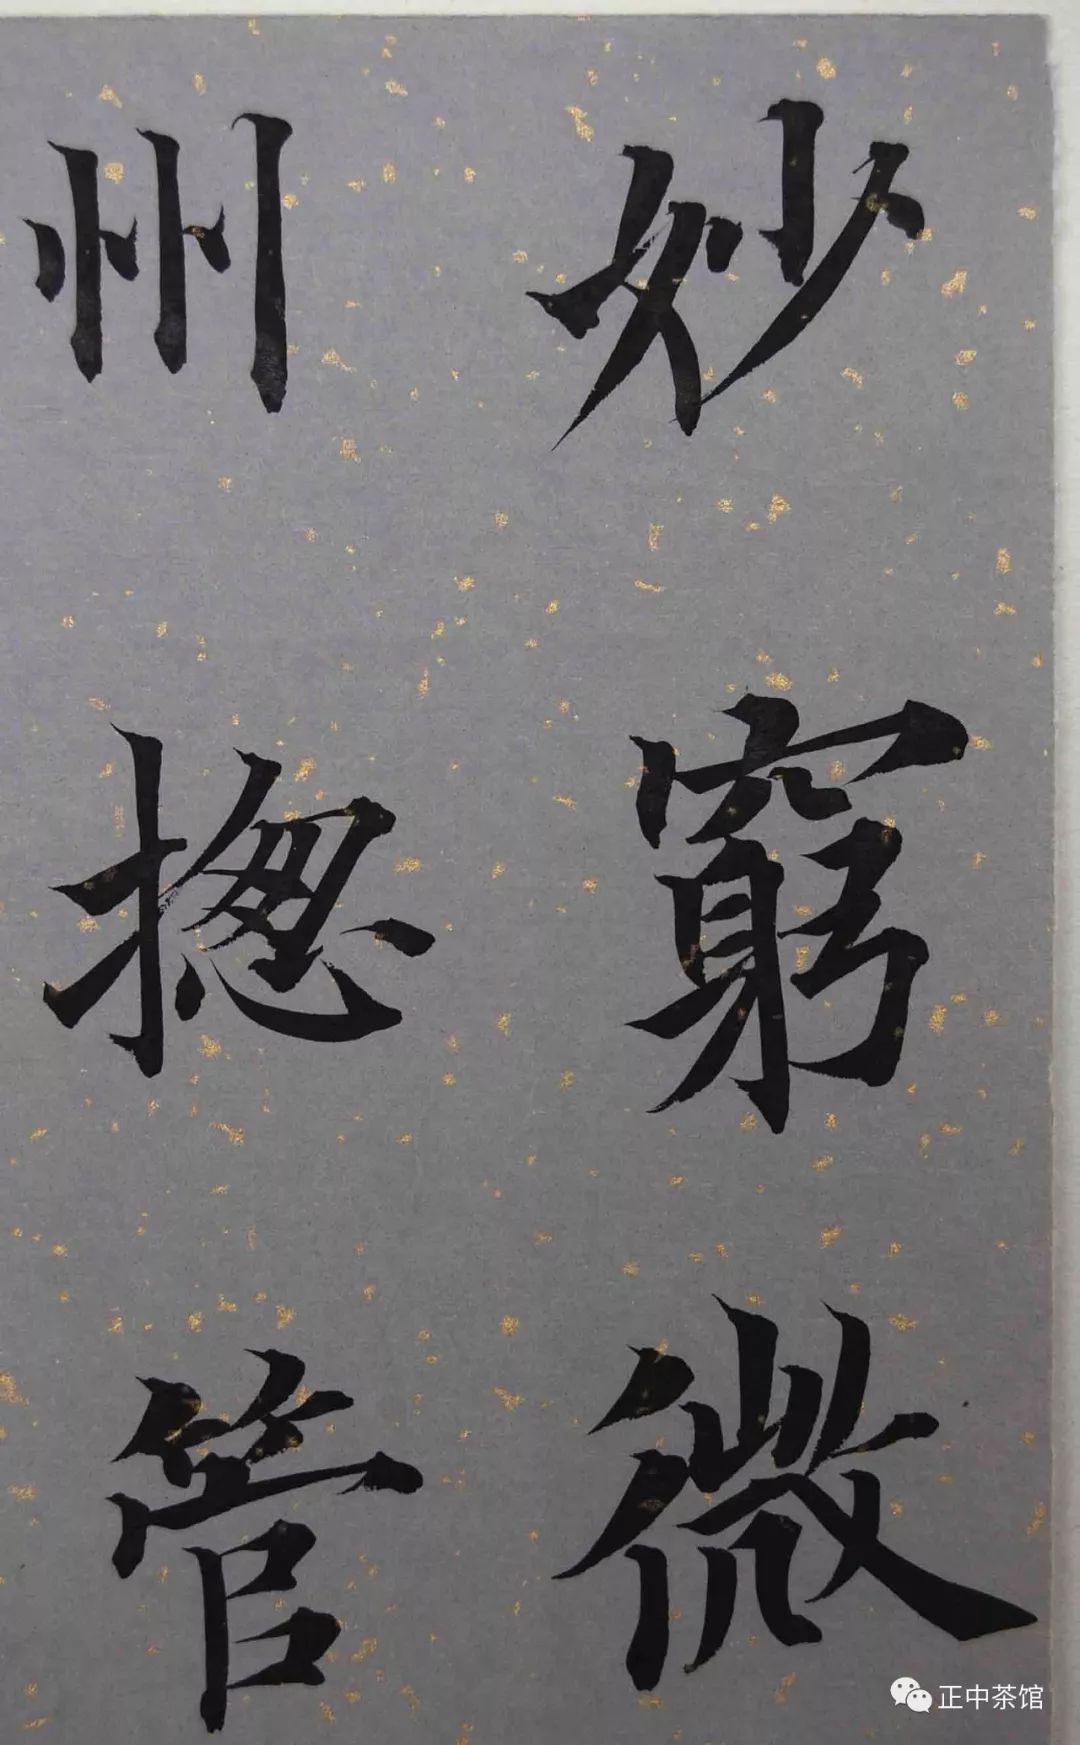 妙窮微
州揔管
正中茶馆